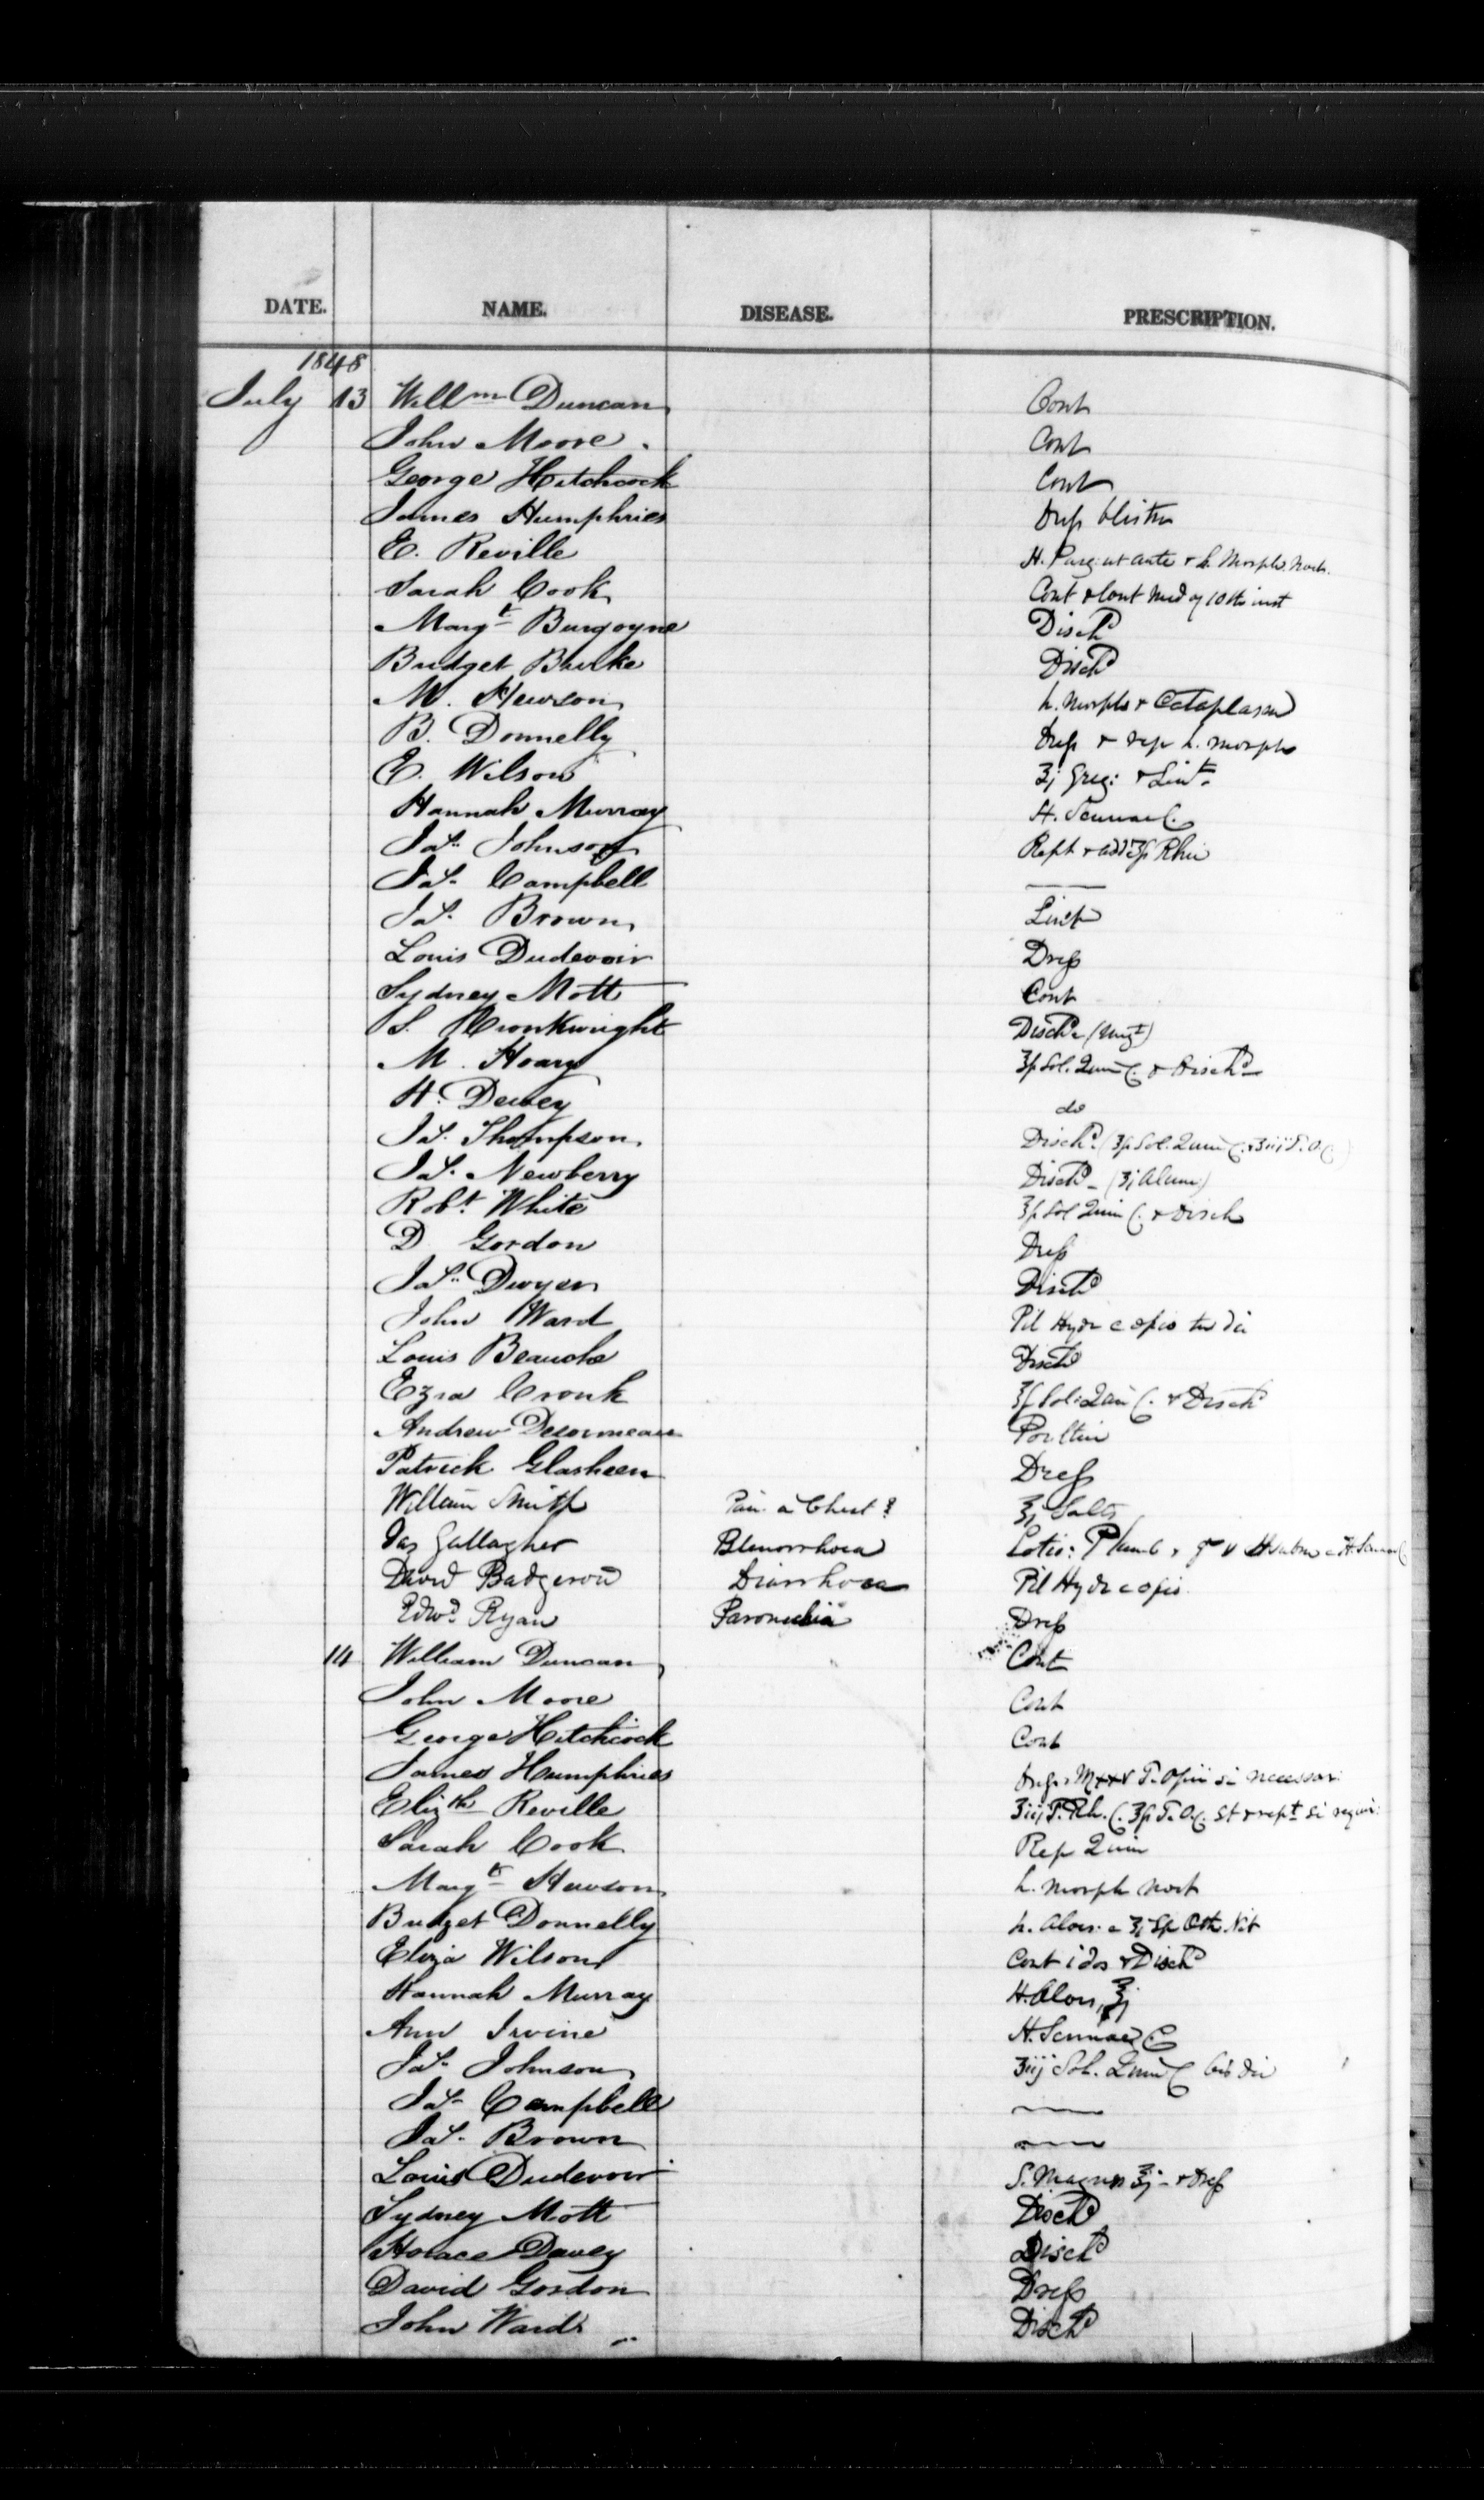 DATE. NAME. DISEASE. PRESCRIPTION.
1848
July 13 Willm Duncan Cont
John Moore Cont
George Hitchcock Cont
James Humphries Dress blister
E. Reville H. Purg: ut ante & h. Morph. Noct.
Sarah Cook Cont & Cont Med of 10th inst
Margt Burgoyne Dischd
Bridget Burke Dischd
M. Hewson h. morph & Cataplasm
B. Donnelly Dress & rep h. morph
E. Wilson ʒj Greg: & Lint.
Hannah Murray H. Sennae C.
Jas. Johnson Rept & add ʒß Rhei
Jas. Campbell ——
Jas. Brown Linct
Louis Dudevoir Dress
Sydney Mott Cont
S. Cronkwright Dischd (ungt)
M. Hoary ʒß Sol. Quin C. & Dischd
H. Dewey do
Jas. Thompson Dischd. (ʒß Sol. Quin C. & ʒiij T.O.C.)
Jas. Newberry Dischd - (ʒj Alum)
Robt. White ʒß Sol Quin C. & Disch
D. Gordon Dress
Jas. Dwyer Dischd
John Ward Pil Hydr c opio ter die
Louis Beauche Dischd
Ezra Cronk ʒß Sol: Quin C. & Dischd
Andrew Desormeau Poultice
Patrick Glasheen Dress
William Smith Pain in Chest ʒj Salts
Jas Gallagher Blenorrhoea Lotio: Plumb & gr V H. Senn C
David Badgerow Diarrhoea Pil Hydr c opio.
Edwd Ryan Paronychia Dress
14 William Duncan Cont
John Moore Cont
George Hitchcock Cont
James Humphries Dress & Mxxv T. Opii si necessar:
Elizth Reville ʒiij T. Rh. C. ʒß T.O.C. St & rept si requir:
Sarah Cook Rep Quin
Margt Hewson h. morph noct
Bridget Donnelly h. Aloes c ʒj Sp Æth Nit
Eliza Wilson Cont i dos & Dischd
Hannah Murray H. Aloes, ʒj
Ann Irvine H. Sennae C
Jas. Johnson ʒiij Sol. Quin C bis die
Jas. Campbell ——
Jas. Brown ——
Louis Dudevoir S. Magnes ʒj - & Dress
Sydney Mott Dischd
Horace Davey Dischd
David Gordon Dress
John Ward Dischd